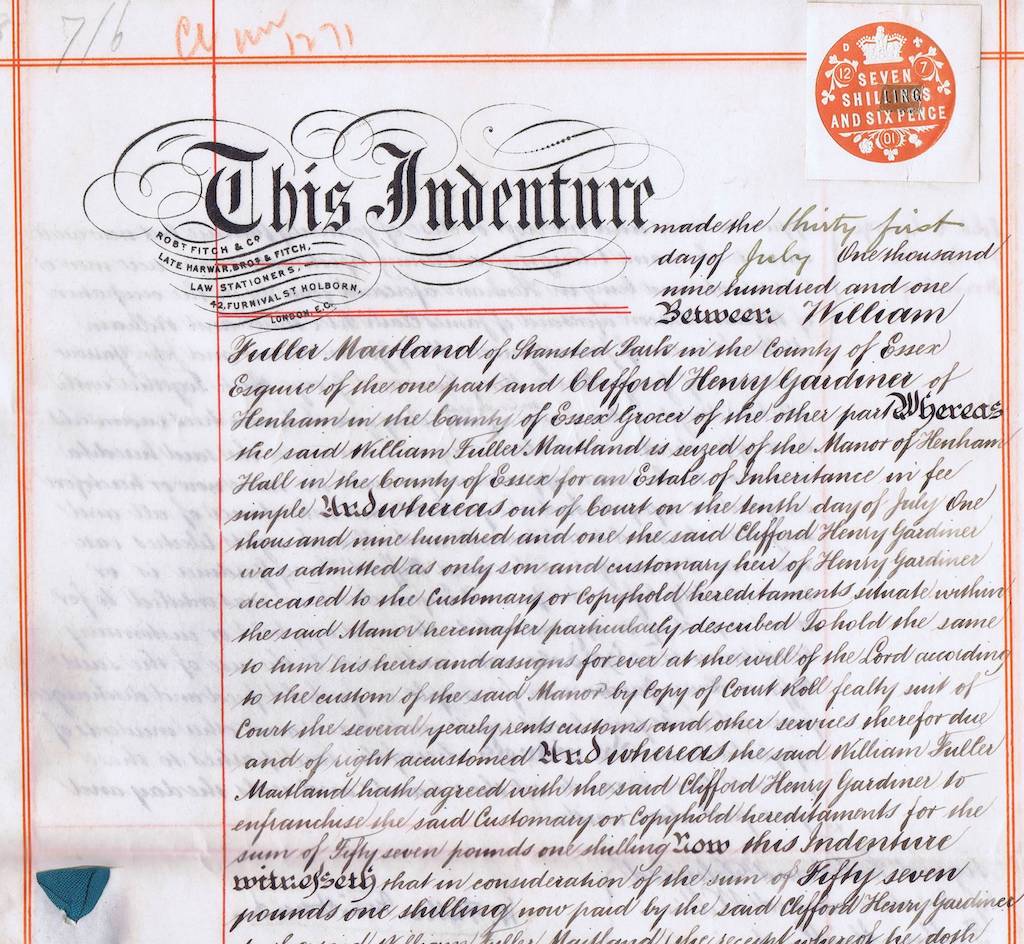 7/6
1271
D
12 7
SEVEN
SHILLINGS
AND SIXPENCE
01
This Indenture made the thirty first
ROBT FITCH & CO
LATE HARWAR, BROS & FITCH,
LAW STATIONERS,
42, FURNIVAL ST HOLBORN,
LONDON, E.C.
day of July One thousand
nine hundred and one
Between William
Fuller Maitland of Stansted Park in the County of Essex
Esquire of the one part and Clifford Henry Gardiner of
Henham in the County of Essex Grocer of the other part Whereas
the said William Fuller Maitland is seized of the Manor of Henham
Hall in the County of Essex for an Estate of Inheritance in fee
simple And whereas out of Court on the tenth day of July One
thousand nine hundred and one the said Clifford Henry Gardiner
was admitted as only son and customary heir of Henry Gardiner
deceased to the Customary or Copyhold hereditaments situate within
the said Manor hereinafter particularly described To hold the same
to him his heirs and assigns for ever at the will of the Lord according
to the custom of the said Manor by Copy of Court Roll fealty suit of
Court the several yearly rents customs and other services therefor due
and of right accustomed And whereas the said William Fuller
Maitland hath agreed with the said Clifford Henry Gardiner to
enfranchise the said Customary or Copyhold hereditaments for the
sum of Fifty seven pounds one shilling Now this Indenture
witnesseth that in consideration of the sum of Fifty seven
pounds one shilling now paid by the said Clifford Henry Gardiner
to the said William Fuller Maitland (the receipt whereof he doth